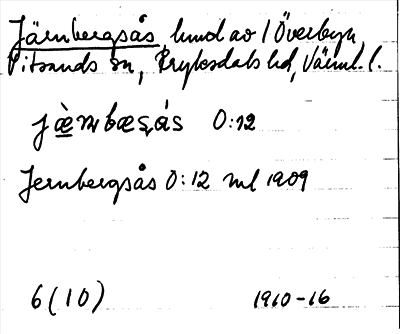 Järnbergsås, hmd av 1 Överbyn,
Vitsands sn, Fryksdals hd, Värml. l.
jæ̀ɳbæʂås 0:12
Jernbergsås 0:12 ml 1909
6(10) 1910-16